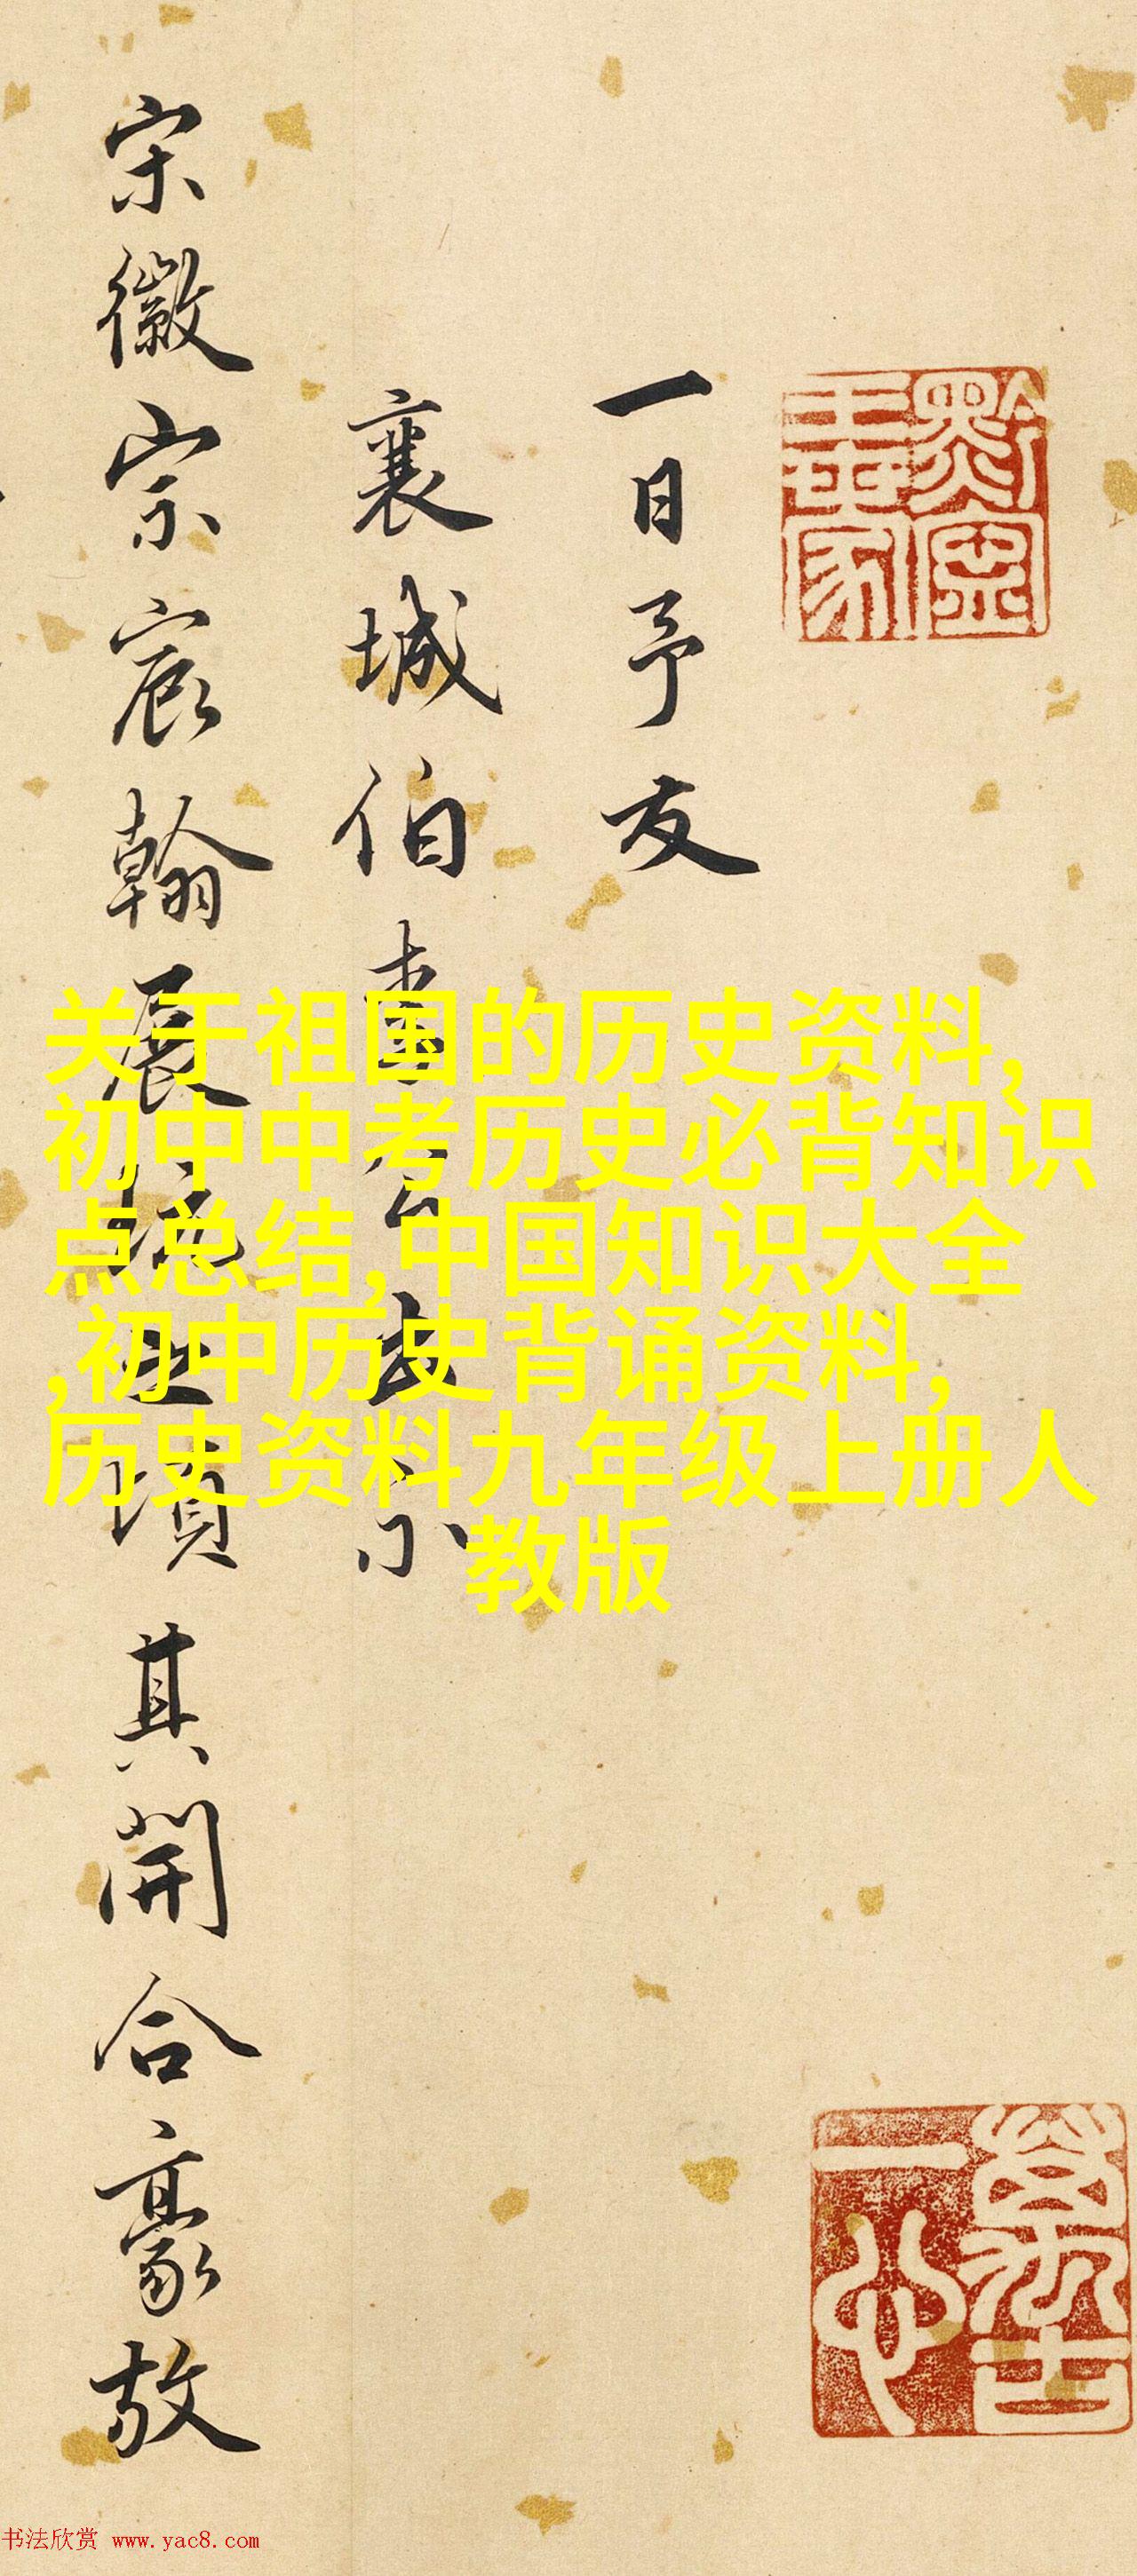 一日予友
襄城伯書公出示
宋徽宗宸翰展玩之頃其開合豪放
关于祖国的历史资料,
初中中考历史必背知识
点总结,中国知识大全
,初中历史背诵资料,
历史资料九年级上册人
教版
书法欣赏 www.yac8.com